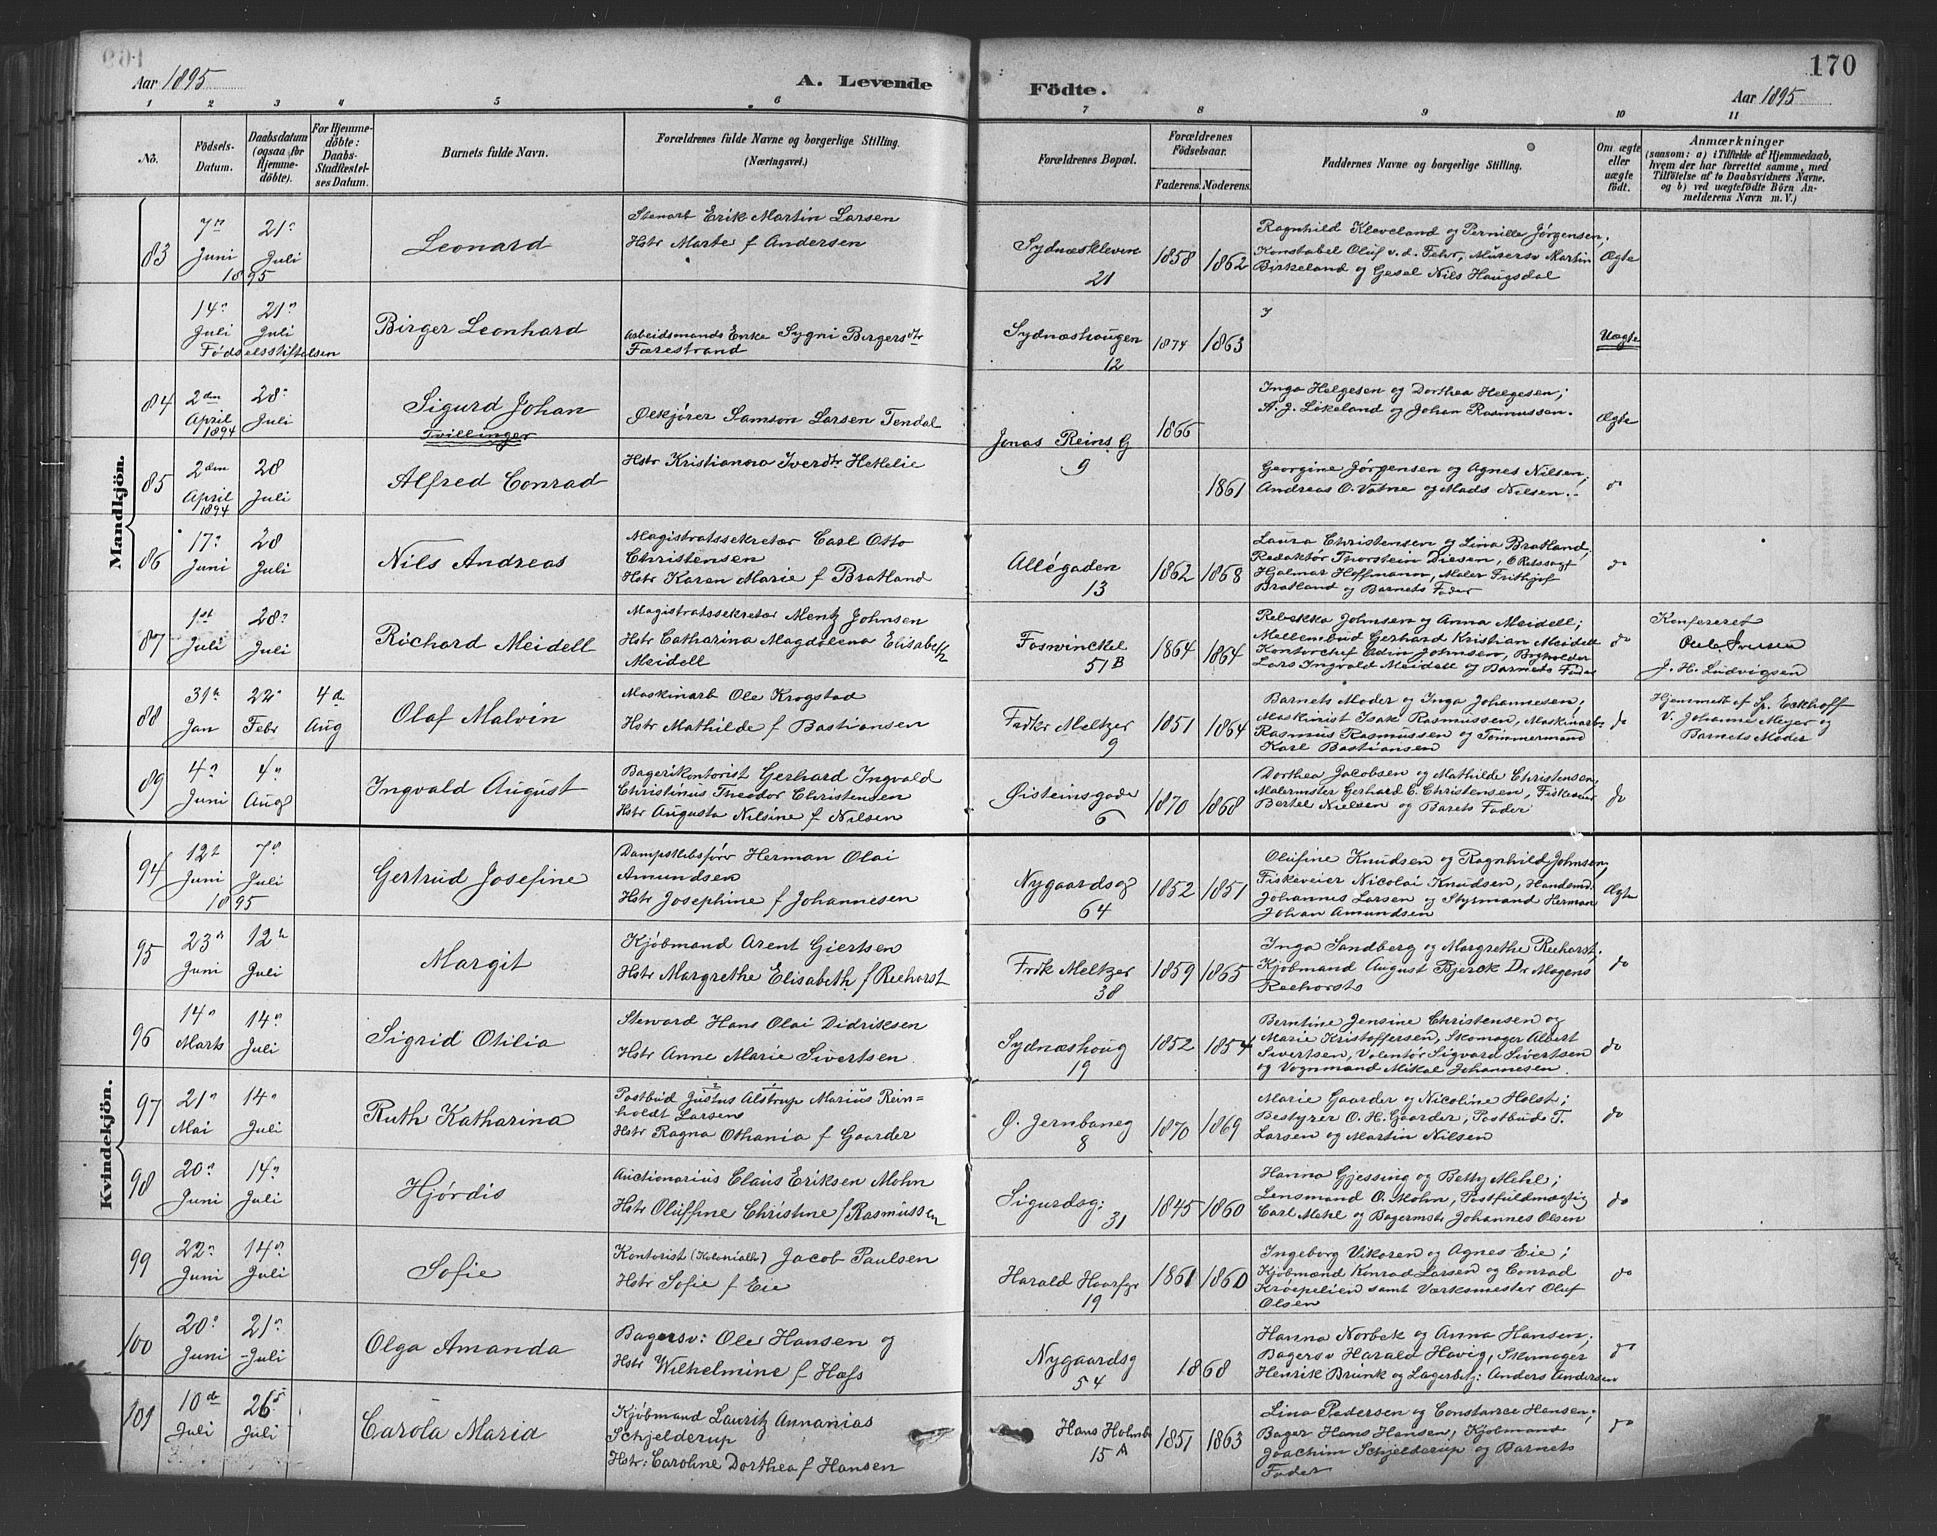 170
Aar 1895
A. Levende
Födte.
Aar 1895
1 2 3 4 5 6 7 8 9 10 11
No.
Födsels-
Datum.
Daabsdatum
(ogsaa for
Hjemme-
döbte).
For Hjemme-
döbte:
Daabs-
Stadfæstel-
ses Datum.
Barnets fulde Navn.
Forældrenes fulde Navne og borgerlige Stilling.
(Næringsvei.)
Forældrenes Bopæl.
Forældrenes
Födselsaar.
Faderens. Moderens.
Faddernes Navne og borgerlige Stilling.
Om ægte
eller
uægte
födt.
Anmærkninger
(saasom: a) i Tilfælde af Hjemmedaab,
hvem der har forrettet samme, med
Tilföielse af to Daabsvidners Navne.
og b) ved uægtefödte Börn An-
melderens Navn m. V.)
Mandkjön.
83
7de
Juni
1895
21
Juli
Leonard
Stenarb Erik Martin Larsen
Hstr Marte f Andersen
Sydnæskleven
21
1858 1862
Ragnhild Kleveland og Pernille Jørgensen;
Konstabel Oluf v.d. Fehr, Murersv Martin
Birkeland og Gesel Nils Haugsdal
Ægte
14
Juli
21
Juli
Födselsstiftelsen
Birger Leonhard
Arbeidsmands Enke Sygni Birgersdtr
Færestrand
Sydnæshougen
12
1874 1863
Uægte
84
2den
April
1894
28
Juli
Sigurd Johan
Tvillinger
Ølkjører Samson Larsen Tendal
Jonas Reins G
9
1866
Inga Helgesen og Dorthea Helgesen;
A. J. Løkeland og Johan Rasmussen.
Ægte
85
2den
April
1894
28
Juli
Alfred Conrad
Hstr Kristianna Iverdtr Hetlelie
1861
Georgine Jørgensen og Agnes Nilsen,
Andreas O. Vatne og Mads Nilsen.
do
86
17
Juni
28
Juli
Nils Andreas
Magistratssekretær Carl Otto
Christensen
Hstr Karen Marie f Bratland
Allégaden
13
1862 1868
Laura Christensen og Lina Bratland,
Redaktør Thorstein Diesen, ORetssagf
Hjalmar Hoffmann, Maler Frithjof
Bratland og Barnets Fader
do
87
1st
Juli
28
Juli
Richard Meidell
Magistratssekretær Mentz Johnsen
Hstr Catharina Magdalena Elisabeth
Meidell
Foswinckel
51 B
1864 1864
Rebekka Johnsen og Anna Meidell;
Mellemsbud Gerhard Kristian Meidell
Kontorchef Edin Johnsen, Bogholder
Lars Ingvald Meidell og Barnets Fader
do
Konfereret
J. H. Ludvigsen
88
31te
Jan
22
Febr
4d
Aug
Olaf Malvin
Maskinarb Ole Krogstad
Hstr Mathilde f Bastiansen
Fredkr Meltzer
9
1851 1864
Barnets Moder og Inga Johannesen;
Maskinist Isak Rasmussen, Maskinarb
Rasmus Rasmussen og Tømmermand
Karl Bastiansen
do
Hjemmedt af Sp. Eckhoff
V. Johanne Meyer og
Barnets Moder
89
4
Juni
4
Aug
Ingvald August
Bagerikontorist Gerhard Ingvald
Christinus Theodor Christensen
Hstr Augusta Nilsine f Nilsen
Øisteinsgade
6
1870 1868
Dorthea Jacobsen og Mathilde Christensen,
Malermster Gerhard C. Christensen, Fiskevrier
Bertel Nielsen og Barets Fader
do
Kvindekjön.
94
12t
Juni
1895
7
Juli
Gertrud Josefine
Dampskibsförer Herman Olai
Amundsen
Hstr Josephine f Johannesen
Nygaardsg
64
1852 1851
Olufine Knudsen og Ragnhild Johnsen,
Fiskeveier Nicolai Knudsen, Handemd.
Johannes Larsen og Styrmand Herman
Johan Amundsen
Ægte
95
23
Juni
12te
Juli
Margit
Kjøbmand Arent Giertsen
Hstr Margrethe Elisabeth f Reehorst
Fredk Meltzer
38
1859 1865
Inga Sandberg og Margrethe Reehorst;
Kjøbmand August Bjerck Dr Mogens
Reehorsts
do
96
14
Marts
14
Juli
Sigrid Otilia
Steward Hans Olai Didriksen
Hstr Anne Marie Sivertsen
Sydnæshoug
19
1852 1854
Berntine Jensine Christensen og
Marie Kristoffersen, Skomager Albert
Sivertsen, Volentör Sigvard Sivertsen
og Vognmand Mikal Johannesen.
do
97
21
Mai
14
Juli
Ruth Katharina
Postbud Justus Alstrup Marius Rein=
holdt Larsen
Hstr Ragna Othania f Gaarder
Ø. Jernbaneg
8
1870 1869
Marie Gaarder og Nicoline Holst;
Bestyrer O. H. Gaarder, Postbude T.
Larsen og Martin Nilsen
do
98
20
Juni
14
Juli
Hjørdis
Auctionarius Claus Eriksen Mohn
Hstr Oluffine Christine f Rasmussen
Sigurdsg:
31
1845 1860
Hanna Gjessing og Betty Mehl;
Lensmand O. Mohn, Postfuldmægtig
Carl Mehl og Bagermstr Johannes Olsen
do
99
22
Juni
14
Juli
Sofie
Kontorist (Kolonialh) Jacob Paulsen
Hstr Sofie f Eie
Harald Haarfgr
19
1861 1860
Ingeborg Vikøren og Agnes Eie;
Kjøbmand Konrad Larsen og Conrad
Krøepelien samt Værksmester Oluf
Olsen
do
100
20
Juni
21
Juli
Olga Amanda
Bagersv: Ole Hansen og
Hstr Wilhelmine f Hafs
Nygaardsg
54
1868
Hanna Norbek og Anna Hansen;
Bagersv Harald Havig, Skomager
Henrik Brunk og Lagerbetj: Anders Andersen
do
101
10de
Juli
26
Juli
Carola Maria
Kjøbmand Lauritz Annanias
Schjelderup
Hstr: Caroline Dorthea f Hansen
Hans Holmb
15 A
1851 1863
Lina Pedersen og Constance Hansen;
Bager Hans Hansen, Kjøbmand
Joachim Schjelderup og Barnets
Fader
do